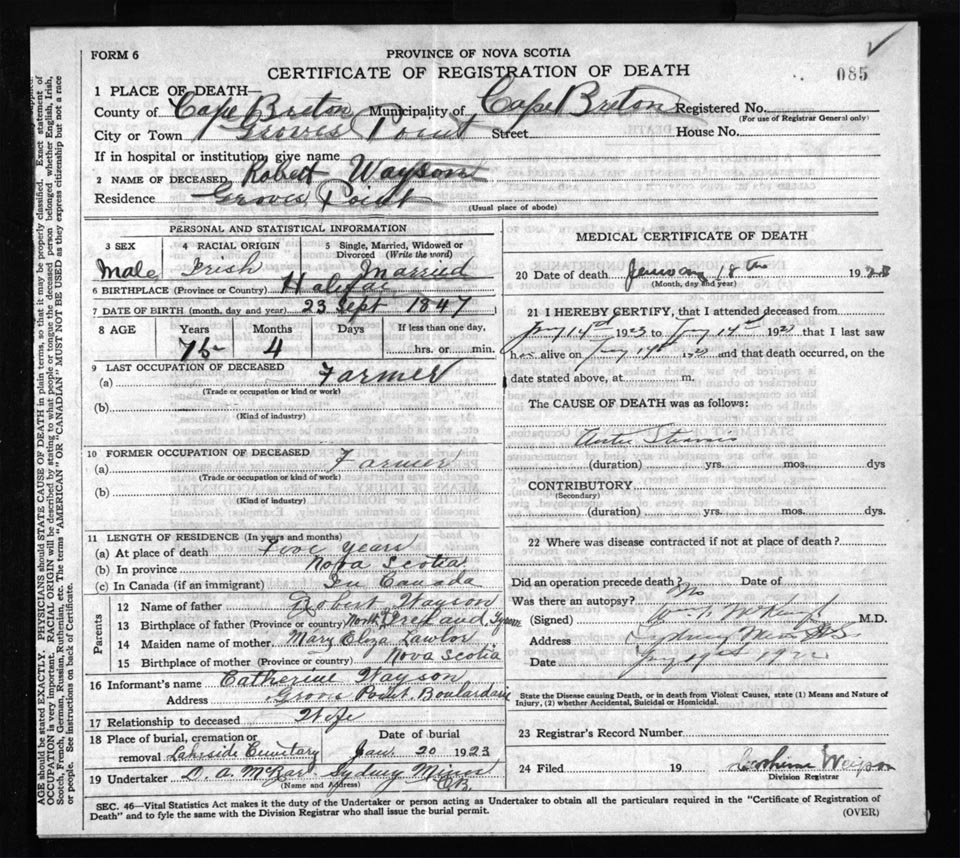 FORM 6
PROVINCE OF NOVA SCOTIA
CERTIFICATE OF REGISTRATION OF DEATH
085
1 PLACE OF DEATH—
County of Cape Breton Municipality of Cape Breton Registered No.
(For use of Registrar General only)
City or Town Groves Point Street House No.
If in hospital or institution, give name
2 NAME OF DECEASED Robert Wayson
Residence Groves Point
(Usual place of abode)
PERSONAL AND STATISTICAL INFORMATION
3 SEX 4 RACIAL ORIGIN 5 Single, Married, Widowed or Divorced (Write the word)
Male Irish Married
6 BIRTHPLACE (Province or Country) Halifax
7 DATE OF BIRTH (month, day and year) 23 Sept 1847
8 AGE Years Months Days If less than one day,
75 4 hrs. or min.
9 LAST OCCUPATION OF DECEASED
(a) Farmer
(Trade or occupation or kind or work)
(b)
(Kind of industry)
10 FORMER OCCUPATION OF DECEASED
(a) Farmer
(Trade or occupation or kind of work)
(b)
(Kind of industry)
11 LENGTH OF RESIDENCE (In years and months)
(a) At place of death years
(b) In province Nova Scotia
(c) In Canada (if an immigrant) In Canada
Parents
12 Name of father Robert Wayson
13 Birthplace of father (Province or country) North Ireland
14 Maiden name of mother Mary Eliza Lawlor
15 Birthplace of mother (Province or country) Nova Scotia
16 Informant's name Catherine Wayson
Address Groves Point Boulardarie
17 Relationship to deceased Wife
18 Place of burial, cremation or removal Date of burial
Lakeside Cemetary Jan. 20 1923
19 Undertaker Sydney Mines
(Name and Address) C.B.
MEDICAL CERTIFICATE OF DEATH
20 Date of death January 18th 1923
(Month, day and year)
21 I HEREBY CERTIFY, that I attended deceased from
Jany 14th 1923 to Jany 14th 1923 that I last saw
him alive on Jany 14th 1923 and that death occurred, on the
date stated above, at m.
The CAUSE OF DEATH was as follows:
(duration) yrs. mos. dys
CONTRIBUTORY
(Secondary)
(duration) yrs. mos. dys.
22 Where was disease contracted if not at place of death?
Did an operation precede death? No Date of
Was there an autopsy?
(Signed) M.D.
Address Sydney Mines N.S.
Date
State the Disease causing Death, or in death from Violent Causes, state (1) Means and Nature of
Injury, (2) whether Accidental, Suicidal or Homicidal.
23 Registrar's Record Number
24 Filed 19 Catherine Wayson
Division Registrar
SEC. 46—Vital Statistics Act makes it the duty of the Undertaker or person acting as Undertaker to obtain all the particulars required in the "Certificate of Registration of
Death" and to fyle the same with the Division Registrar who shall issue the burial permit.
(OVER)
AGE should be stated EXACTLY. PHYSICIANS should STATE CAUSE OF DEATH in plain terms, so that it may be properly classified. Exact statement of
OCCUPATION is very important. RACIAL ORIGIN will be described by stating to what people or tongue the deceased person belonged whether English, Irish,
Scotch, French, German, Russian, Ruthenian, etc. The terms "AMERICAN" or "CANADIAN" MUST NOT BE USED as they express citizenship but not a race
or people. See instructions on back of Certificate.